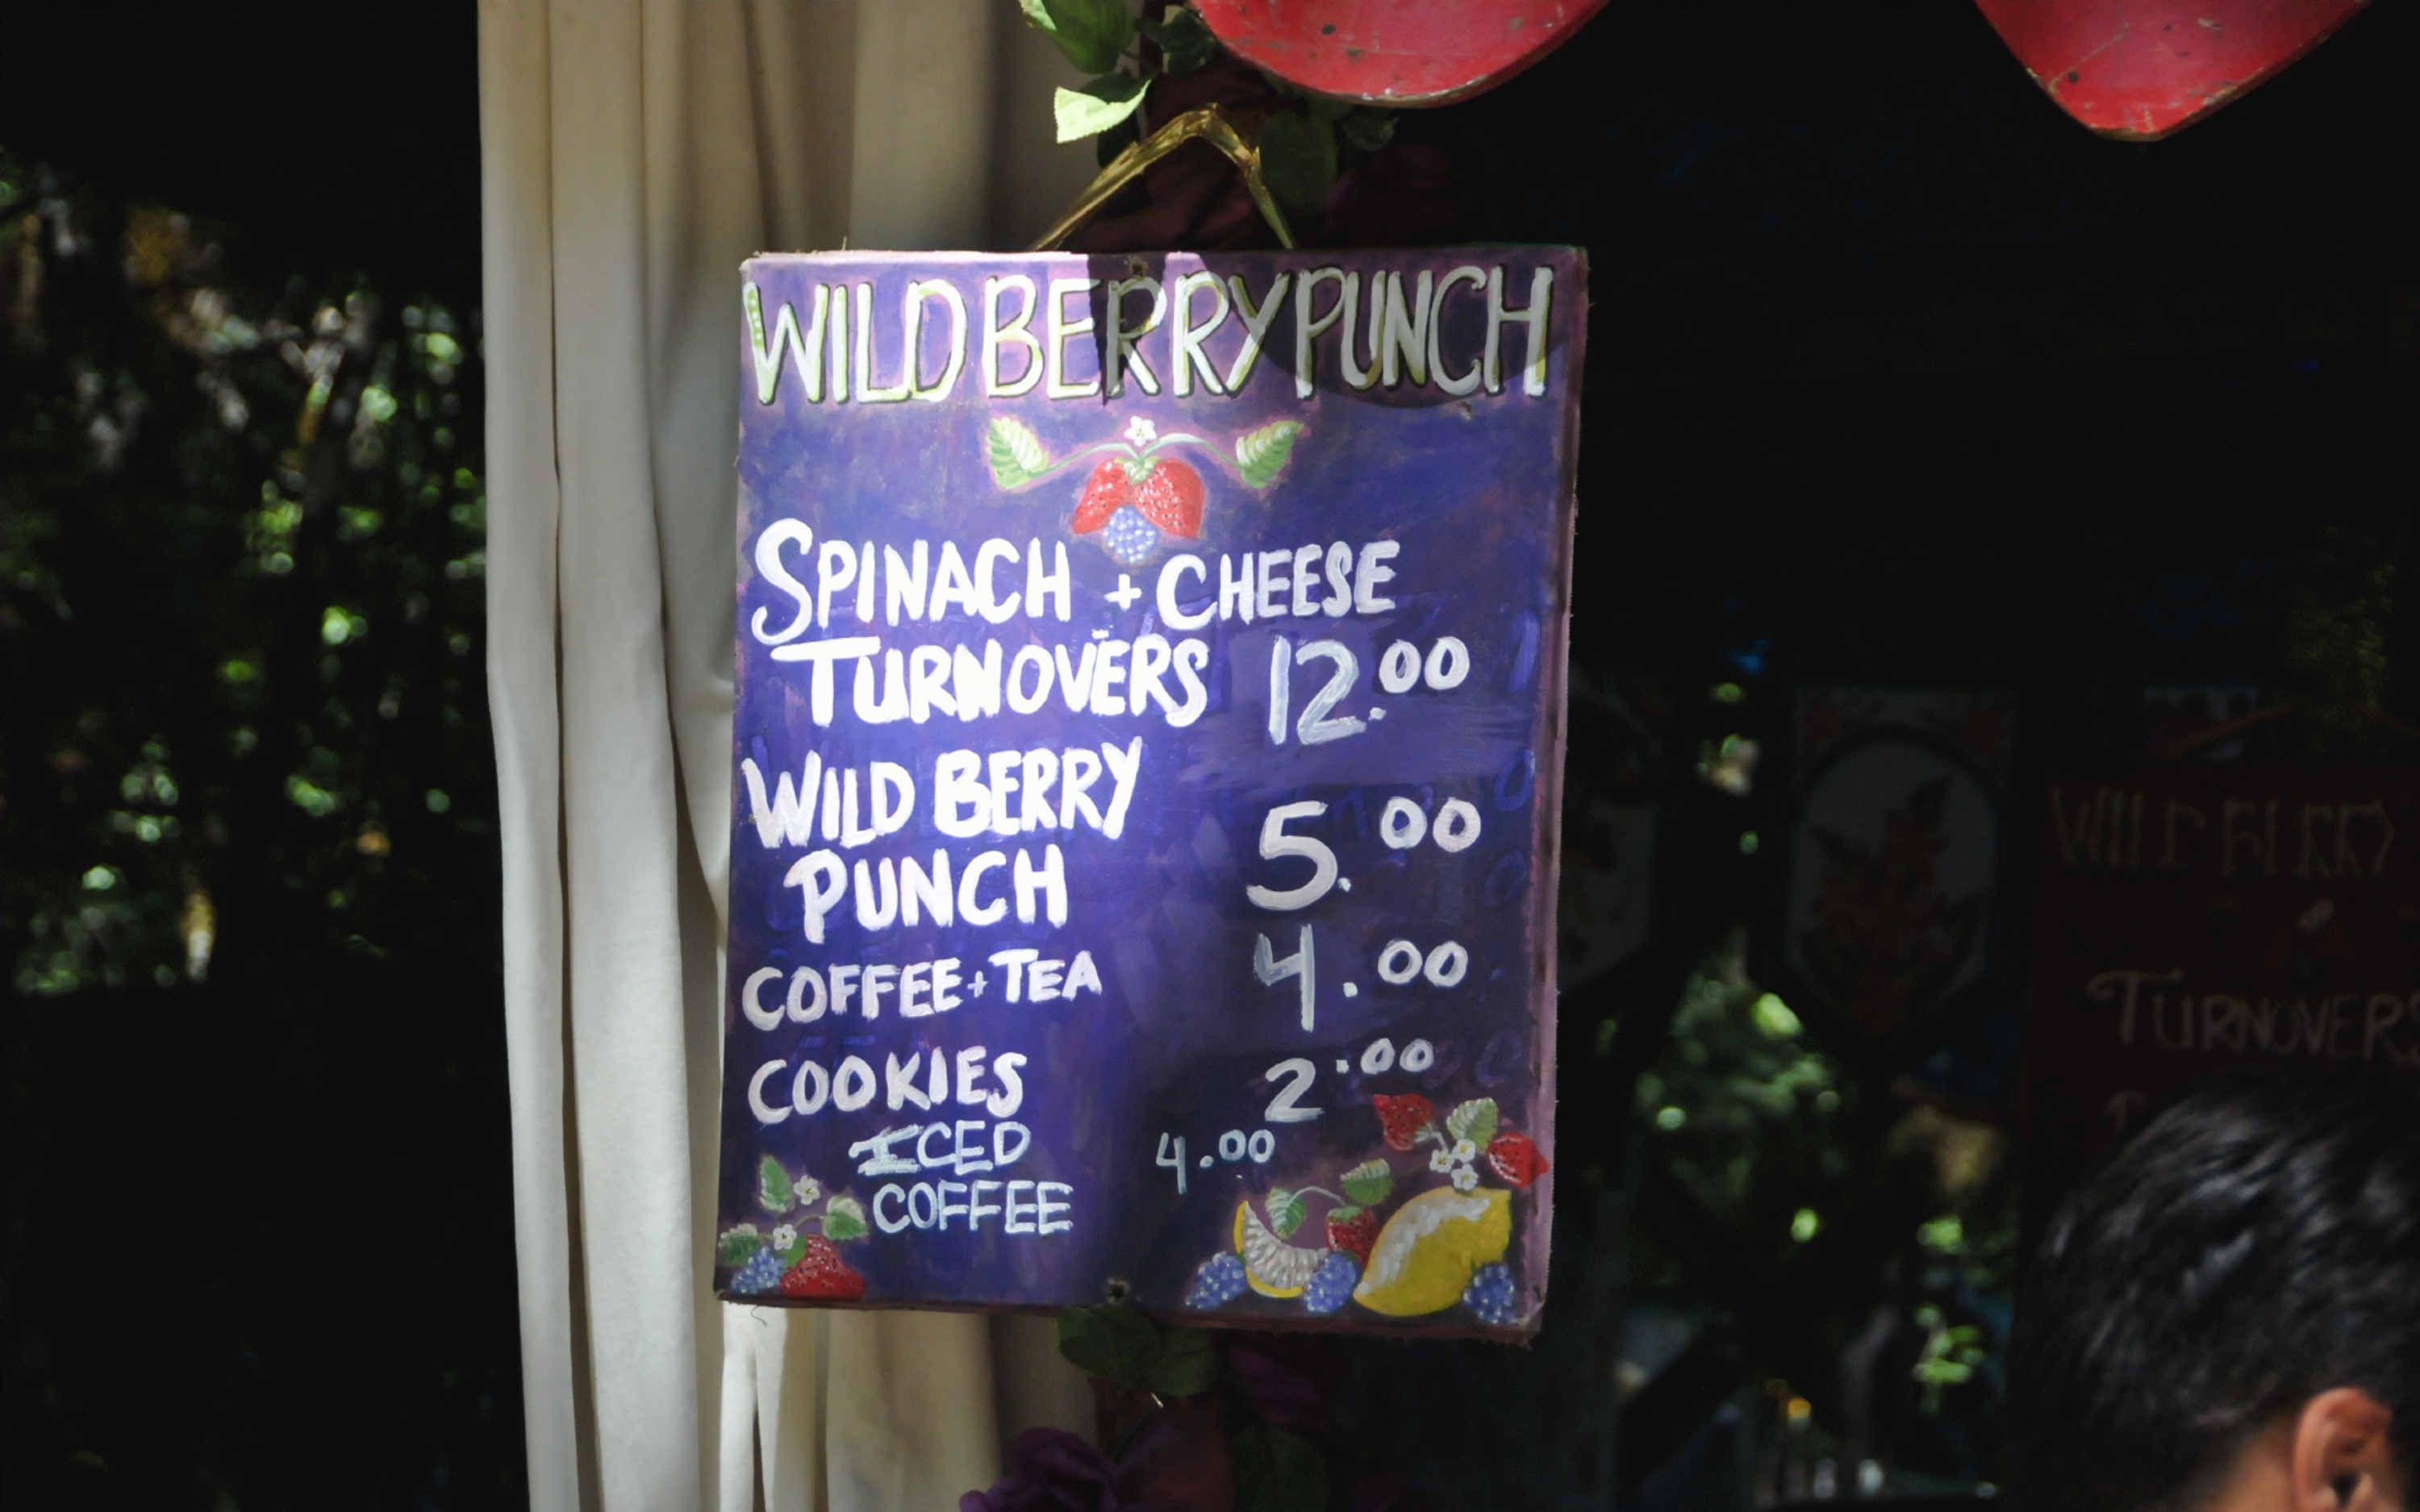 WILD BERRY PUNCH
SPINACH + CHEESE
TURNOVERS 12.00
WILD BERRY
PUNCH 5.00
COFFEE + TEA 4.00
COOKIES 2.00
ICED 4.00
COFFEE
WILD BERRY
TURNOVERS